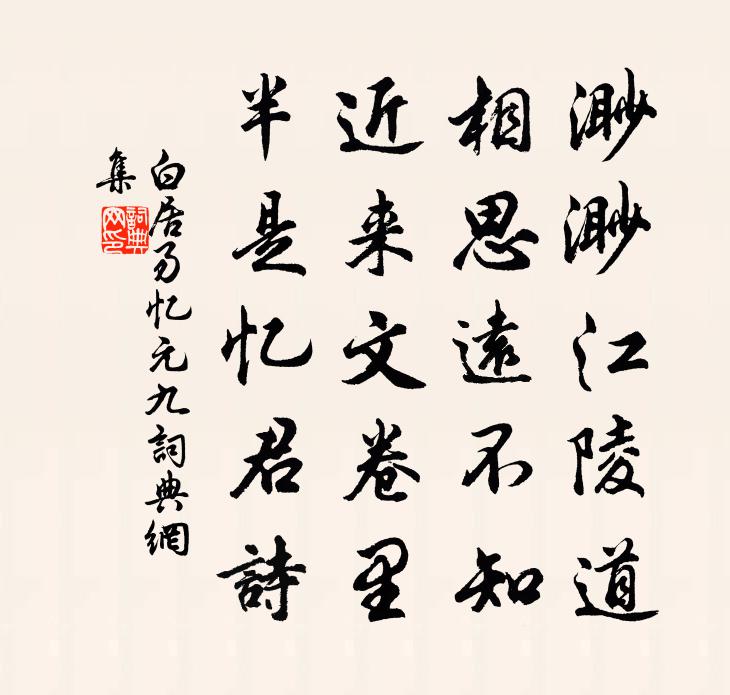 渺渺江陵道
相思遠不知
近来文卷里
半是忆君詩
白居易忆元九詞典網
集
詞典
网印